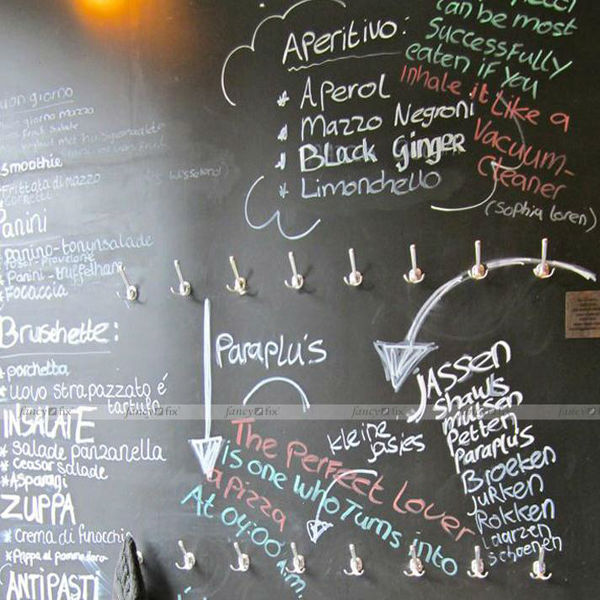 giorno
giorno mazzo
Fruit salade
smoothie
Frittata di mazzo
Panini
panino-tonijnsalade
Panini-truffelham
Focaccia
Bruschette:
porchetta
uovo strapazzato é
tartufo
INSALATE
* Salade panzanella
* Ceasar salade
* Asparagi
ZUPPA
* Crema di funocchio
* Pappa al pommodoro
ANTIPASTI
Aperitivo:
* Aperol
* Mazzo Negroni
* Black Ginger
* Limonchello
can be most
Successfully
eaten if you
inhale it like a
Vacuum-
Cleaner
(Sophia Loren)
Paraplu's
kleine
jasjes
JASSEN
Shawls
mutsen
Petten
Paraplu's
Broeken
Jurken
Rokken
Laarzen
schoenen
The Perfect Lover
is one who Turns into
a pizza
At 04:00 a.m.
fancy fix
fancy fix
fancy fix
fancy fix
fancy fix